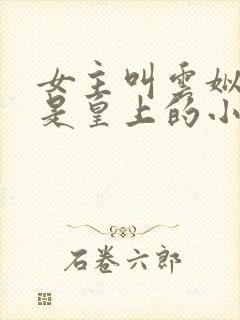 女主叫云姒
是皇上的小
石卷六郎